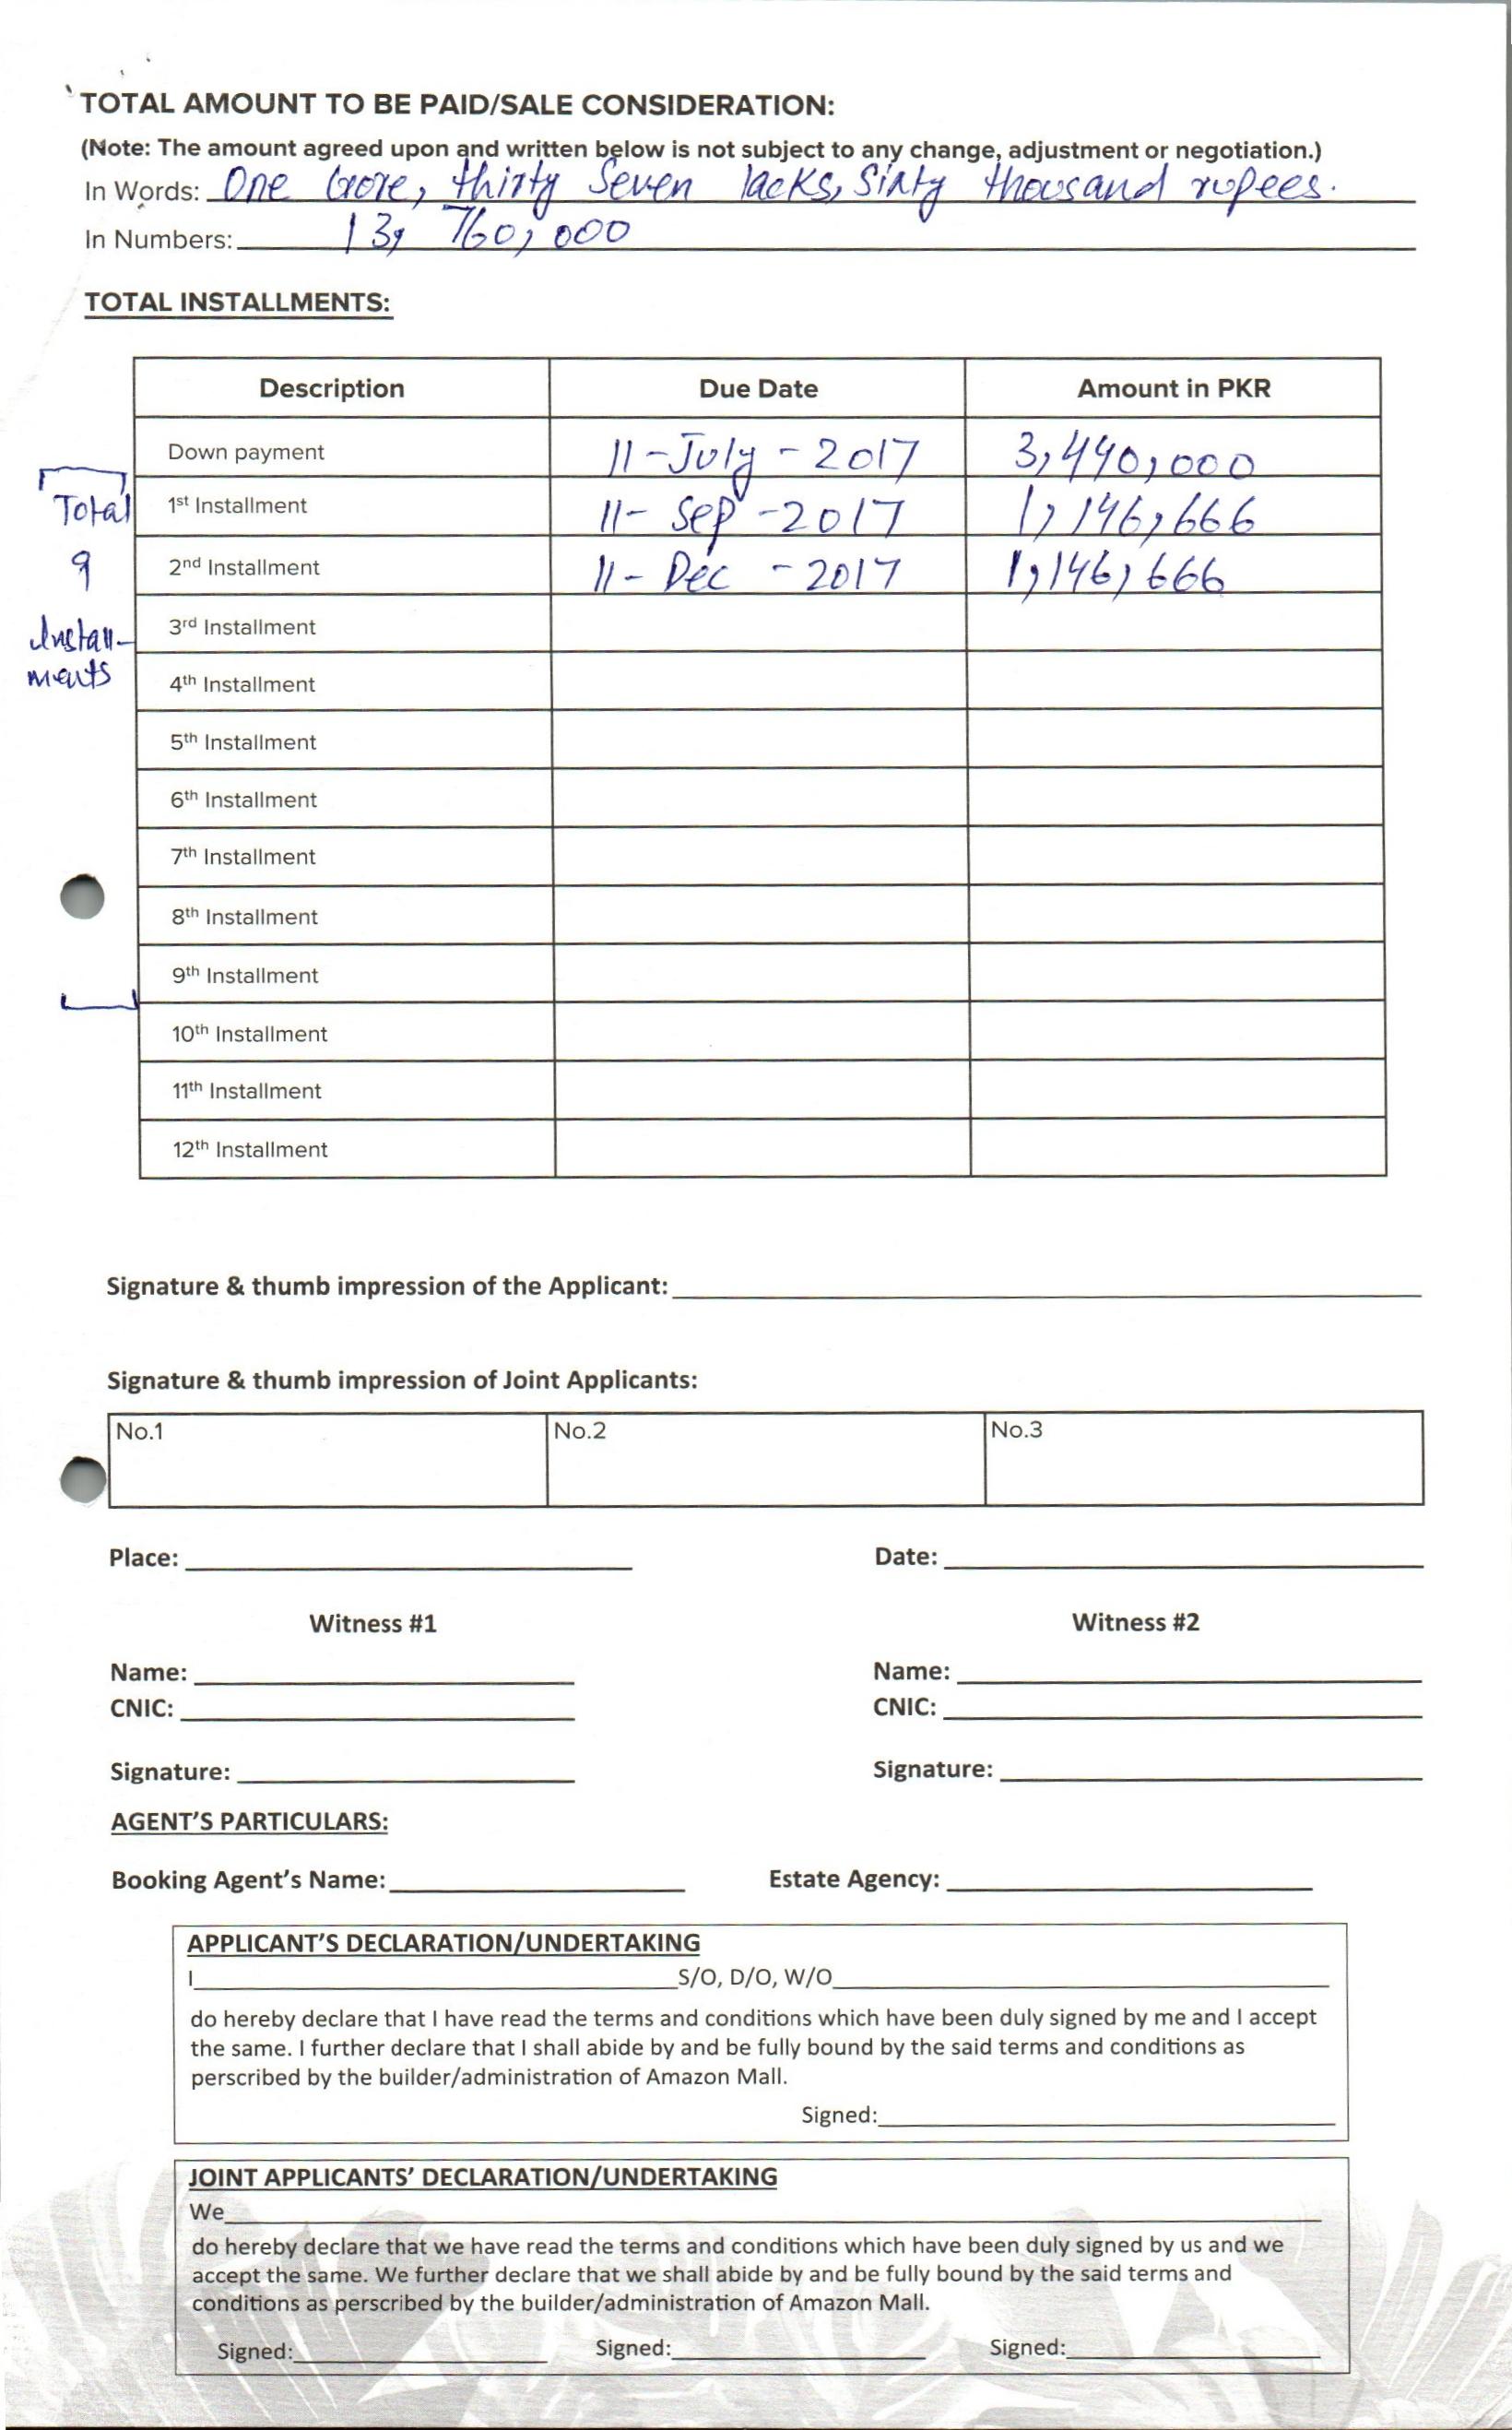 TOTAL AMOUNT TO BE PAID/SALE CONSIDERATION:
(Note: The amount agreed upon and written below is not subject to any change, adjustment or negotiation.)
In Words: One Crore, thirty Seven lacks, Sixty thousand rupees.
In Numbers: 13, 760, 000
TOTAL INSTALLMENTS:
Description Due Date Amount in PKR
Down payment 11-July-2017 3,440,000
1st Installment 11-Sep-2017 1,146,666
2nd Installment 11-Dec-2017 1,146,666
3rd Installment
4th Installment
5th Installment
6th Installment
7th Installment
8th Installment
9th Installment
10th Installment
11th Installment
12th Installment
Total
9
Install-
ments
Signature & thumb impression of the Applicant:
Signature & thumb impression of Joint Applicants:
No.1 No.2 No.3
Place: Date:
Witness #1 Witness #2
Name: Name:
CNIC: CNIC:
Signature: Signature:
AGENT'S PARTICULARS:
Booking Agent's Name: Estate Agency:
APPLICANT'S DECLARATION/UNDERTAKING
I S/O, D/O, W/O
do hereby declare that I have read the terms and conditions which have been duly signed by me and I accept
the same. I further declare that I shall abide by and be fully bound by the said terms and conditions as
perscribed by the builder/administration of Amazon Mall.
Signed:
JOINT APPLICANTS' DECLARATION/UNDERTAKING
We
do hereby declare that we have read the terms and conditions which have been duly signed by us and we
accept the same. We further declare that we shall abide by and be fully bound by the said terms and
conditions as perscribed by the builder/administration of Amazon Mall.
Signed: Signed: Signed: